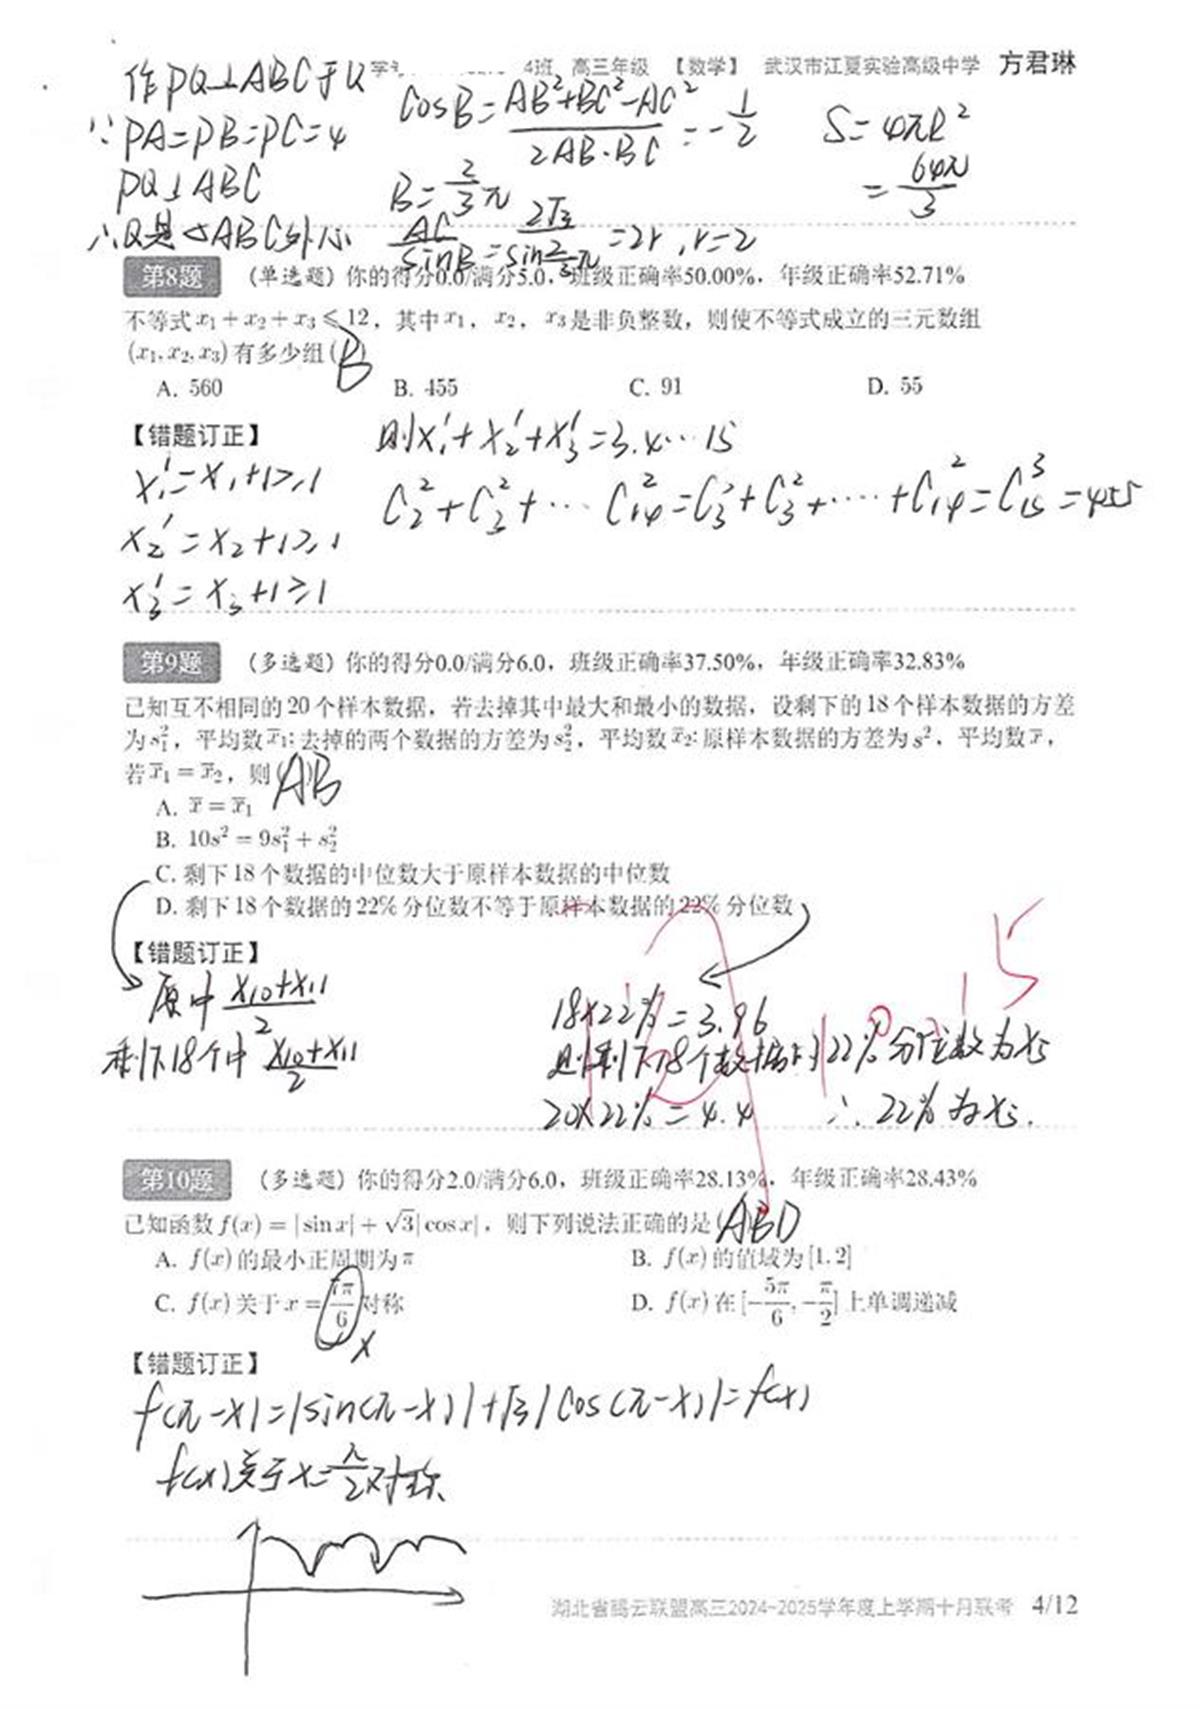 作PQ⊥ABC于Q 学号 4班 高三年级 【数学】 武汉市江夏实验高级中学 方君琳
∵PA=PB=PC=4
PQ⊥ABC
∴Q是△ABC外心
cosB=(AB²+BC²-AC²)/(2AB·BC)=-1/2
B=2/3π
AC/sinB=2√3/sin2/3π=2r,r=2
S=4πR²
=64π/3
第8题 (单选题) 你的得分0.0/满分5.0, 班级正确率50.00%, 年级正确率52.71%
不等式 x₁+x₂+x₃⩽12, 其中 x₁, x₂, x₃是非负整数, 则使不等式成立的三元数组
(x₁,x₂,x₃)有多少组(B)
A. 560 B. 455 C. 91 D. 55
【错题订正】
x₁'=x₁+1≥1
x₂'=x₂+1≥1
x₃'=x₃+1≥1
则x₁'+x₂'+x₃'=3.4…15
C₂²+C₃²+… C₁₄²=C₃³+C₃²+……+C₁₄²=C₁₅³=455
第9题 (多选题) 你的得分0.0/满分6.0, 班级正确率37.50%, 年级正确率32.83%
已知互不相同的20个样本数据, 若去掉其中最大和最小的数据, 设剩下的18个样本数据的方差
为s₁², 平均数x̄₁; 去掉的两个数据的方差为s₂², 平均数x̄₂; 原样本数据的方差为s², 平均数x̄,
若x̄₁=x̄₂, 则(AB)
A. x̄=x̄₁
B. 10s²=9s₁²+s₂²
C. 剩下18个数据的中位数大于原样本数据的中位数
D. 剩下18个数据的22%分位数不等于原样本数据的22%分位数
【错题订正】
原中 (x₁₀+x₁₁)/2
剩下18个中 (x₁₀+x₁₁)/2
18×22%=3.96
则剩下18个数据的22%分位数为x₅
20×22%=4.4 ∴22%为x₅.
15
第10题 (多选题) 你的得分2.0/满分6.0, 班级正确率28.13%, 年级正确率28.43%
已知函数f(x)=|sin x|+√3|cos x|, 则下列说法正确的是(ABD
A. f(x)的最小正周期为π B. f(x)的值域为[1,2]
C. f(x)关于x=7π/6对称 D. f(x)在[-5π/6,-π/2]上单调递减
x
【错题订正】
f(π-x)=|sin(π-x)|+√3|cos(π-x)|=f(x)
f(x)关于x=π/2对称
湖北省腾云联盟高三2024~2025学年度上学期十月联考 4/12